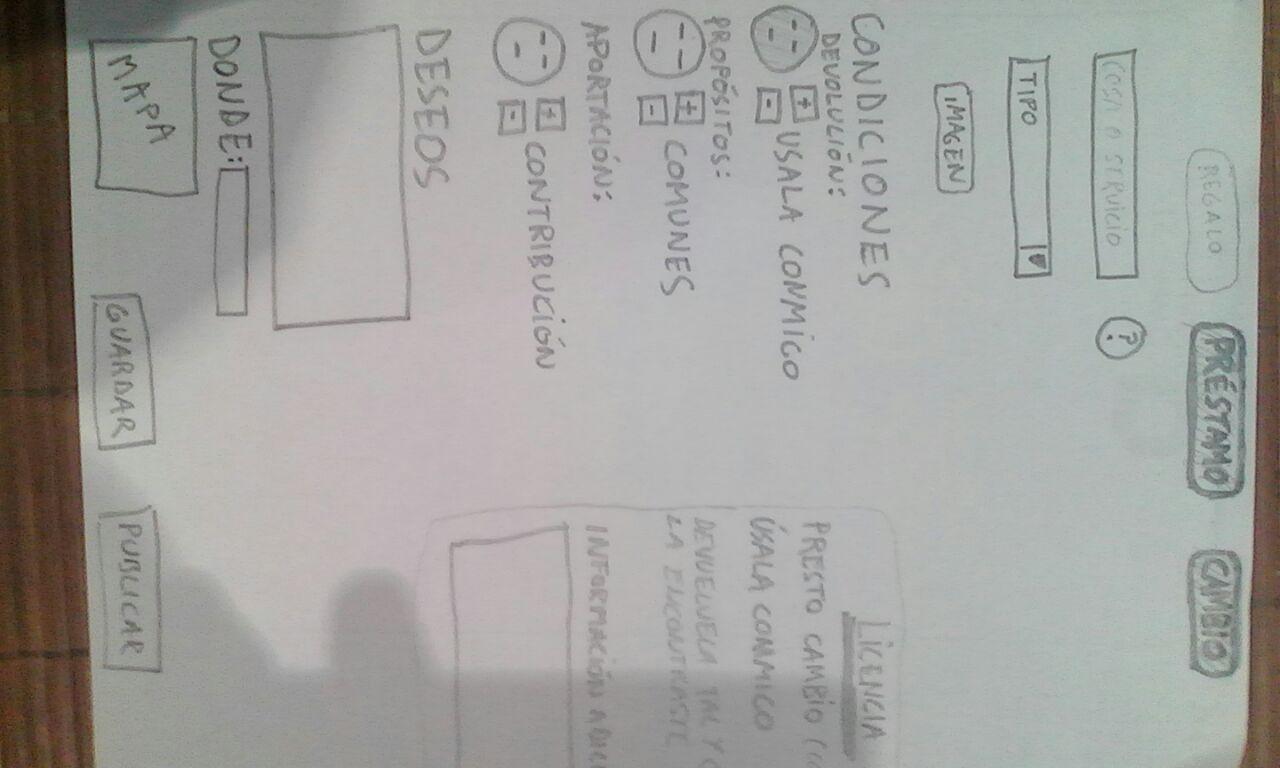 REGALO PRÉSTAMO CAMBIO
COSA O SERVICIO ?
TIPO
IMAGEN
CONDICIONES
DEVOLUCIÓN:
+ USALA CONMIGO
-
PROPÓSITOS:
+ COMUNES
-
APORTACIÓN:
+ CONTRIBUCIÓN
-
DESEOS
DONDE:
MAPA
GUARDAR PUBLICAR
LICENCIA
PRESTO CAMBIO
ÚSALA CONMIGO
DEVUELVELA TAL Y
LA ENCONTRASTE
INFORMACIÓN